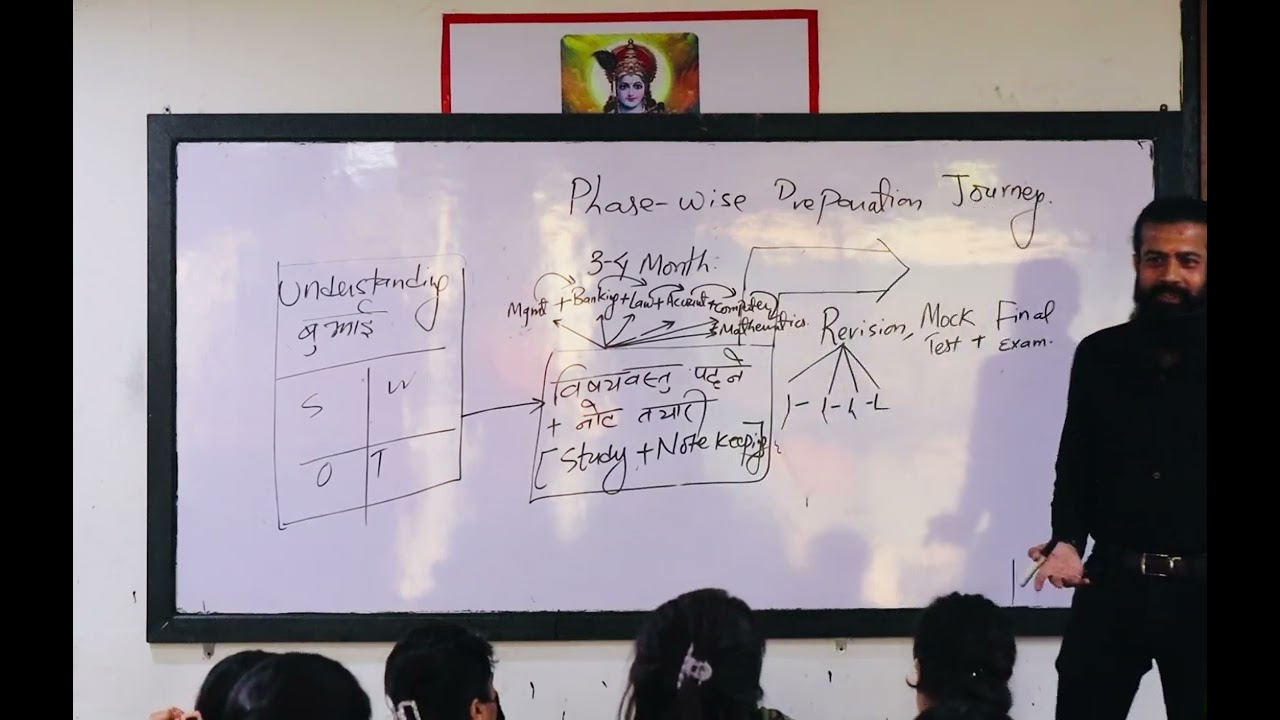 Phase-wise Preparation Journey.
Understanding
बुझाई
S W
O T
3-4 Month:
Mgmt + Banking + Law + Account + Computer
Mathematics
विषयवस्तु पढ्ने
+ नोट तयारी
[Study + Note keeping]
Revision, Mock Test + Final Exam.